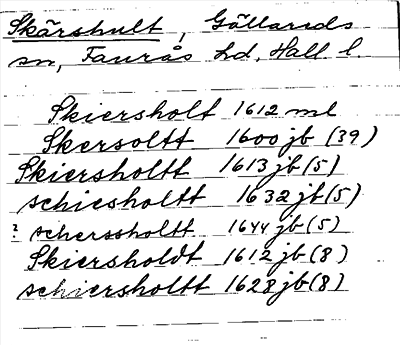 Skärshult, Gällareds
sn, Faurås hd, Hall l.
Skiersholt 1612 ml
Skersoltt 1600 jb (39)
Skiersholtt 1613 jb (5)
schiesholtt 1632 jb (5)
? scherssholtt 1644 jb (5)
Skiersholdt 1612 jb (8)
schiersholtt 1628 jb (8)